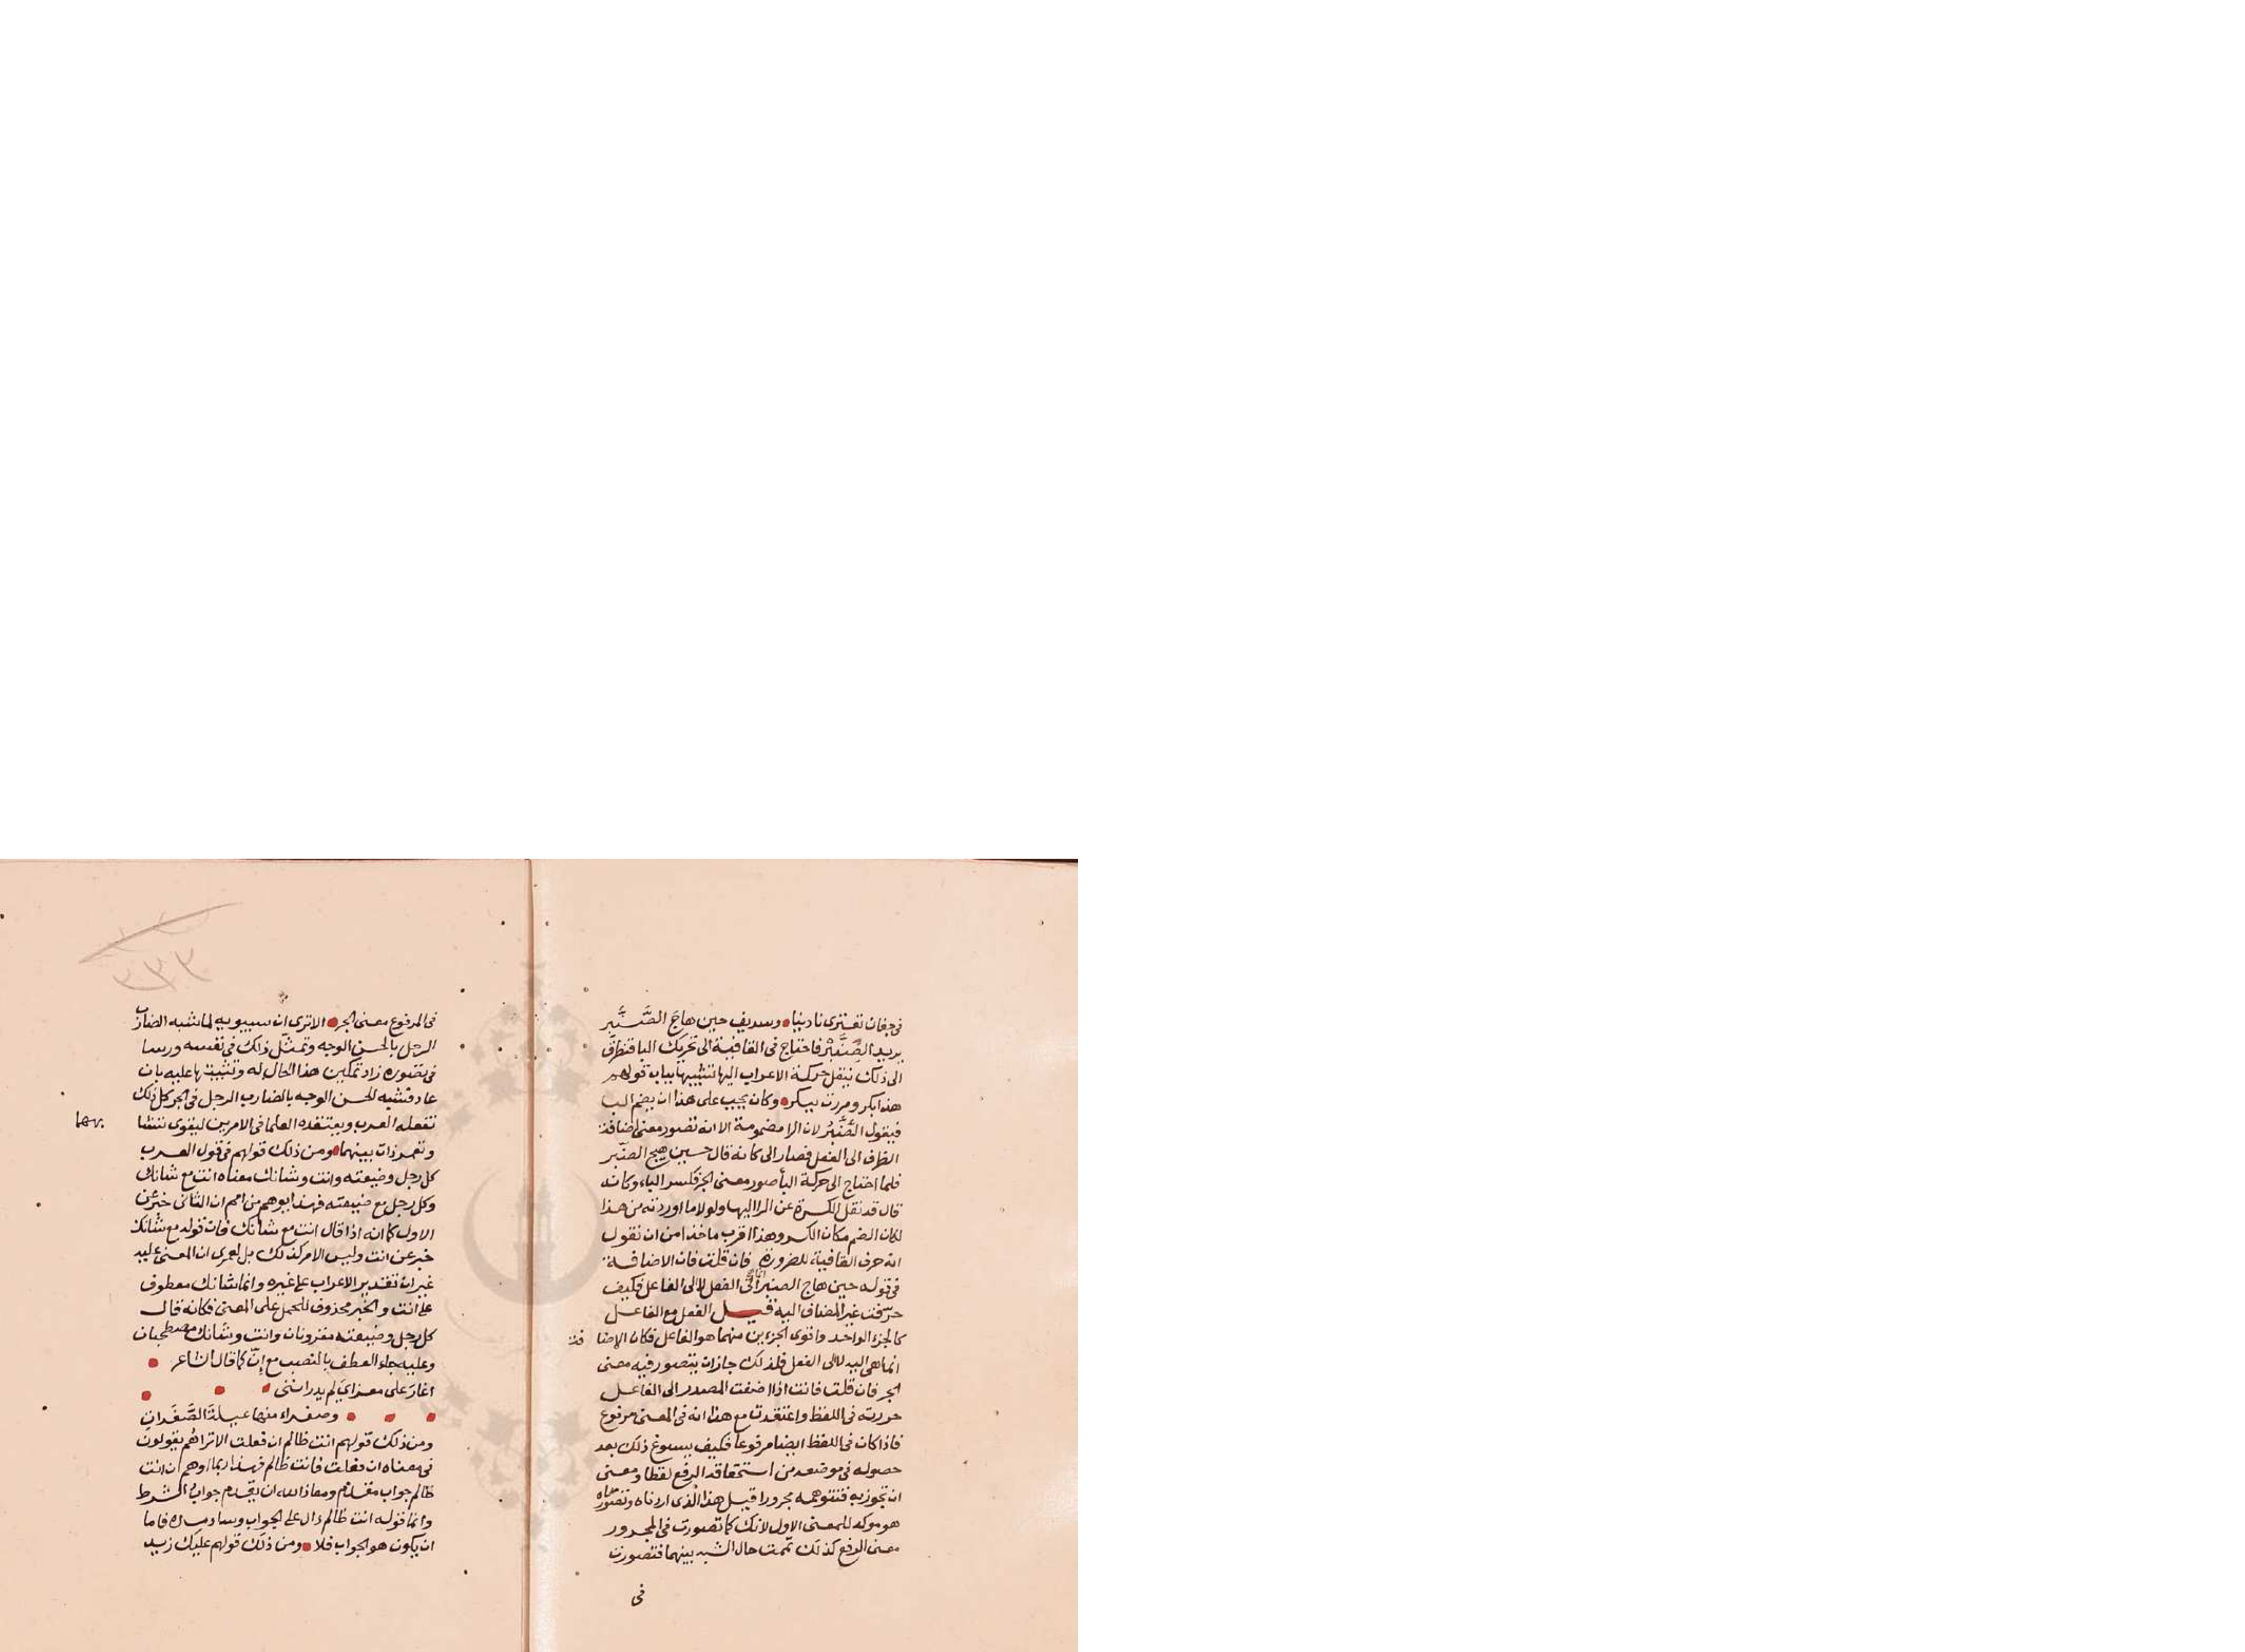 في جفان تعترى نادينا وسديف حين هاج الصنبر
يريد الصنبر فاحتاج في القافية الى تحريك البا فتطرق
الى ذلك بنقل حركة الاعراب اليها تشبيها بباب قولهم
هذا بكر ومررت ببكر وكان يجب على هذا ان يضم البا
فيقول الصنبر لان الرا مضمومة الا انه تصور معنى اضافة
الظرف الى الفعل فصار الى كانه قال حين هيج الصنبر
فلما احتاج الى حركة البا صور معنى الجر فكسر الباء وكانه
قال قد نقل الكسرة عن الرا اليها ولولا ما اوردته من هذا
لكان الضم مكان الكسر وهذا اقرب ماخذا من ان نقول
انه حرف القافية للضرورة فان قلت فان الاضافة
في قوله حين هاج الصنبر انما هي الى الفعل لا الى الفاعل فكيف
حرفت غير المضاف اليه قيل الفعل مع الفاعل
كالجزء الواحد واقوى الجزءين منهما هو الفاعل فكان الاضا فة
انما هي اليه لا الى الفعل فلذلك جاز ان يتصور فيه معنى
الجر فان قلت فانت اذا اضفت المصدر الى الفاعل
جررته في اللفظ واعتقدت مع هذا انه في المعنى مرفوع
فاذا كان في اللفظ ايضا مرفوعا فكيف يسوغ ذلك بعد
حصوله في موضعه من استحقاقه الرفع لفظا ومعنى
ان تجوز به فتتوهمه مجرورا قيل هذا الذي اردناه وتصورناه
هو موكد للمعنى الاول لانك كما تصورت في المجرور
معنى الرفع كذلك تممت حال الشبه بينهما فتصورت
في
في المرفوع معنى الجر الا ترى ان سيبويه لما شبه الضارب
الرجل بالحسن الوجه وتمثل ذلك في نفسه ورسا
في تصوره زاد تمكين هذا الحال له وتثبيتها عليه بان
عاد فشبه الحسن الوجه بالضارب الرجل في الجر كل ذلك
تفعله العرب ويعتقده العلما في الامرين ليقوى تشا
وتعمر ذات بينهما ومن ذلك قولهم في قول العرب
كل رجل وضيعته وانت وشانك معناه انت مع شانك
وكل رجل مع ضيعته فهذا يوهم من امم ان الثاني خبر عن
الاول كما انه اذا قال انت مع شانك فان قوله مع شانك
خبر عن انت وليس الامر كذلك بل لعمرى ان المعنى عليه
غير ان تقدير الاعراب على غيره وانما شانك معطوف
على انت والخبر محذوف للحمل على المعنى فكانه قال
كل رجل وضيعته مقرونان وانت وشانك مصطحبان
وعليه جاء العطف بالنصب مع إن كما قال الشاعر
اغار على معزاي لم يدر انني
وصفراء منها عبلة الصفرات
ومن ذلك قولهم انت ظالم ان فعلت الا تراهم يقولون
في معناه ان فعلت فانت ظالم فهذا ربما اوهم ان انت
ظالم جواب مقدم ومعاذ الله ان يقدم جواب الشرط
وانما قوله انت ظالم دال على الجواب وساد مسده فاما
ان يكون هو الجواب فلا ومن ذلك قولهم عليك زيد